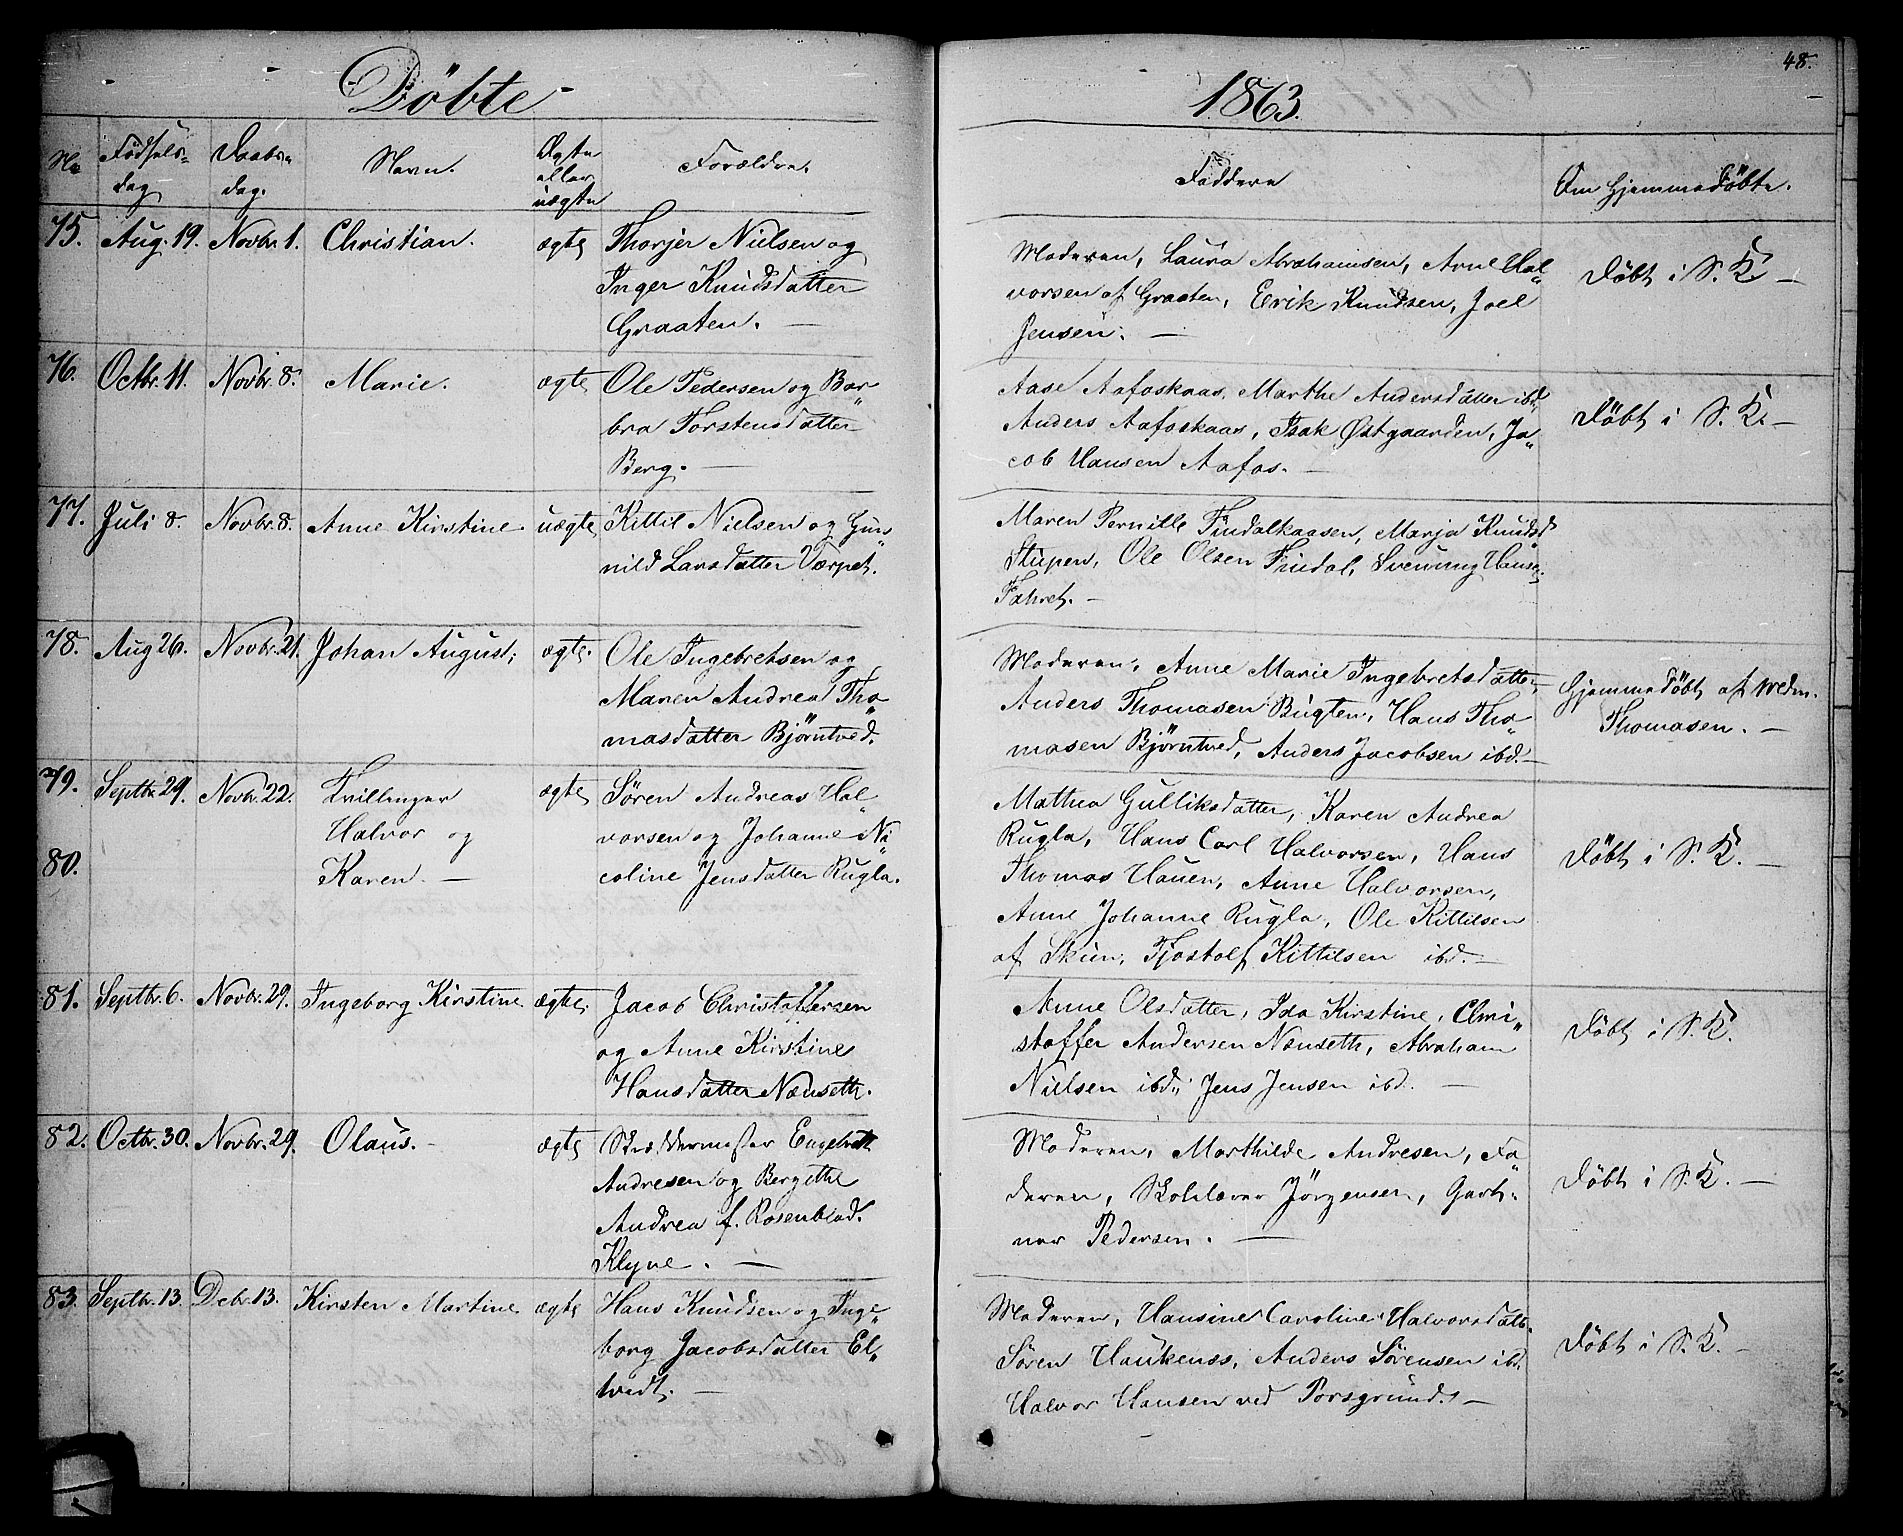 Döbte
1863.
48.
No
Födsels-
dag
Daabs-
dag.
Navn.
Ægte
eller
uægte
Forældre.
Faddere
Om Hjemmedöbte.
75. Aug. 19. Novbr. 1. Christian. ægte Thorjer Nielsen og
Inger Knudsdatter
Graaten. —
Moderen, Laura Abrahamsen, Arne Hal-
vorsen af Graaten, Erik Knudsen, Joel
Jensen. —
Döbt i S. K. —
76. Octbr. 11. Novbr. 8. Marie. ægte Ole Pedersen og Bar-
bra Torstensdatter
Berg. —
Aase Aafoskaas, Marthe Andersdatter ibd,
Anders Aafoskaas, Isak Østgaarden, Ja-
cob Hansen Aafos. —
Döbt i S. K. —
77. Juli 8. Novbr. 8. Anne Kirstine uægte Kittil Nielsen og Gun-
nild Larsdatter Værpet.
Maren Pernille Findalkaasen, Marja Knudsd
Stupen, Ole Olsen Findal, Svenung Hansen
. —
78. Aug 26. Novbr. 21. Johan August, ægte. Ole Ingebretsen og
Maren Andrea Tho-
masdatter Björntved.
Moderen, Anne Marie Ingebretsdatter,
Anders Thomasen Bugten, Hans Tho-
masen Björntved, Anders Jacobsen ibd. —
Hjemmedöbt af
Thomasen. —
79. Septbr. 29. Novbr. 22. Tvillinger ægte Sören Andreas Hal-
Halvor og vorsen og Johanne Ni-
80. Karen. — coline Jensdatter Rugla.
Mathea Gulliksdatter, Karen Andrea
Rugla, Hans Carl Halvorsen, Hans
Thomas Hauen, Anne Halvorsen,
Anne Johanne Rugla, Ole Kittilsen
af Skien, Tjostolf Kittilsen ibd. —
Döbt i S. K. —
81. Septbr. 6. Novbr. 29. Ingeborg Kirstine ægte. Jacob Christoffersen
og Anne Kirstine
Hansdatter Nænseth.
Anne Olsdatter, Ida Kirstine, Chri-
stoffer Andersen Nænseth, Abraham
Nielsen ibd., Jens Jensen ibd. —
Döbt i S. K.
82. Octbr. 30. Novbr. 29. Olaus. — ægte Skræddermester Engebrett
Andresen og Bergithe
Andrea f. Rosenblad.
Klyve. —
Moderen, Marthilde Andresen, Fa-
deren, Skolelærer Jörgensen, Gart-
ner Pedersen. —
Döbt i S. K. —
83. Septbr. 13. Debr. 13. Kirsten Martine ægte Hans Knudsen og Inge-
borg Jacobsdatter El-
tvedt. —
Moderen, Hansine Caroline Halvorsdatt.
Sören Haukenæs, Anders Sörensen ibd.
Halvor Hansen ved Porsgrund. —
Döbt i S. K. —